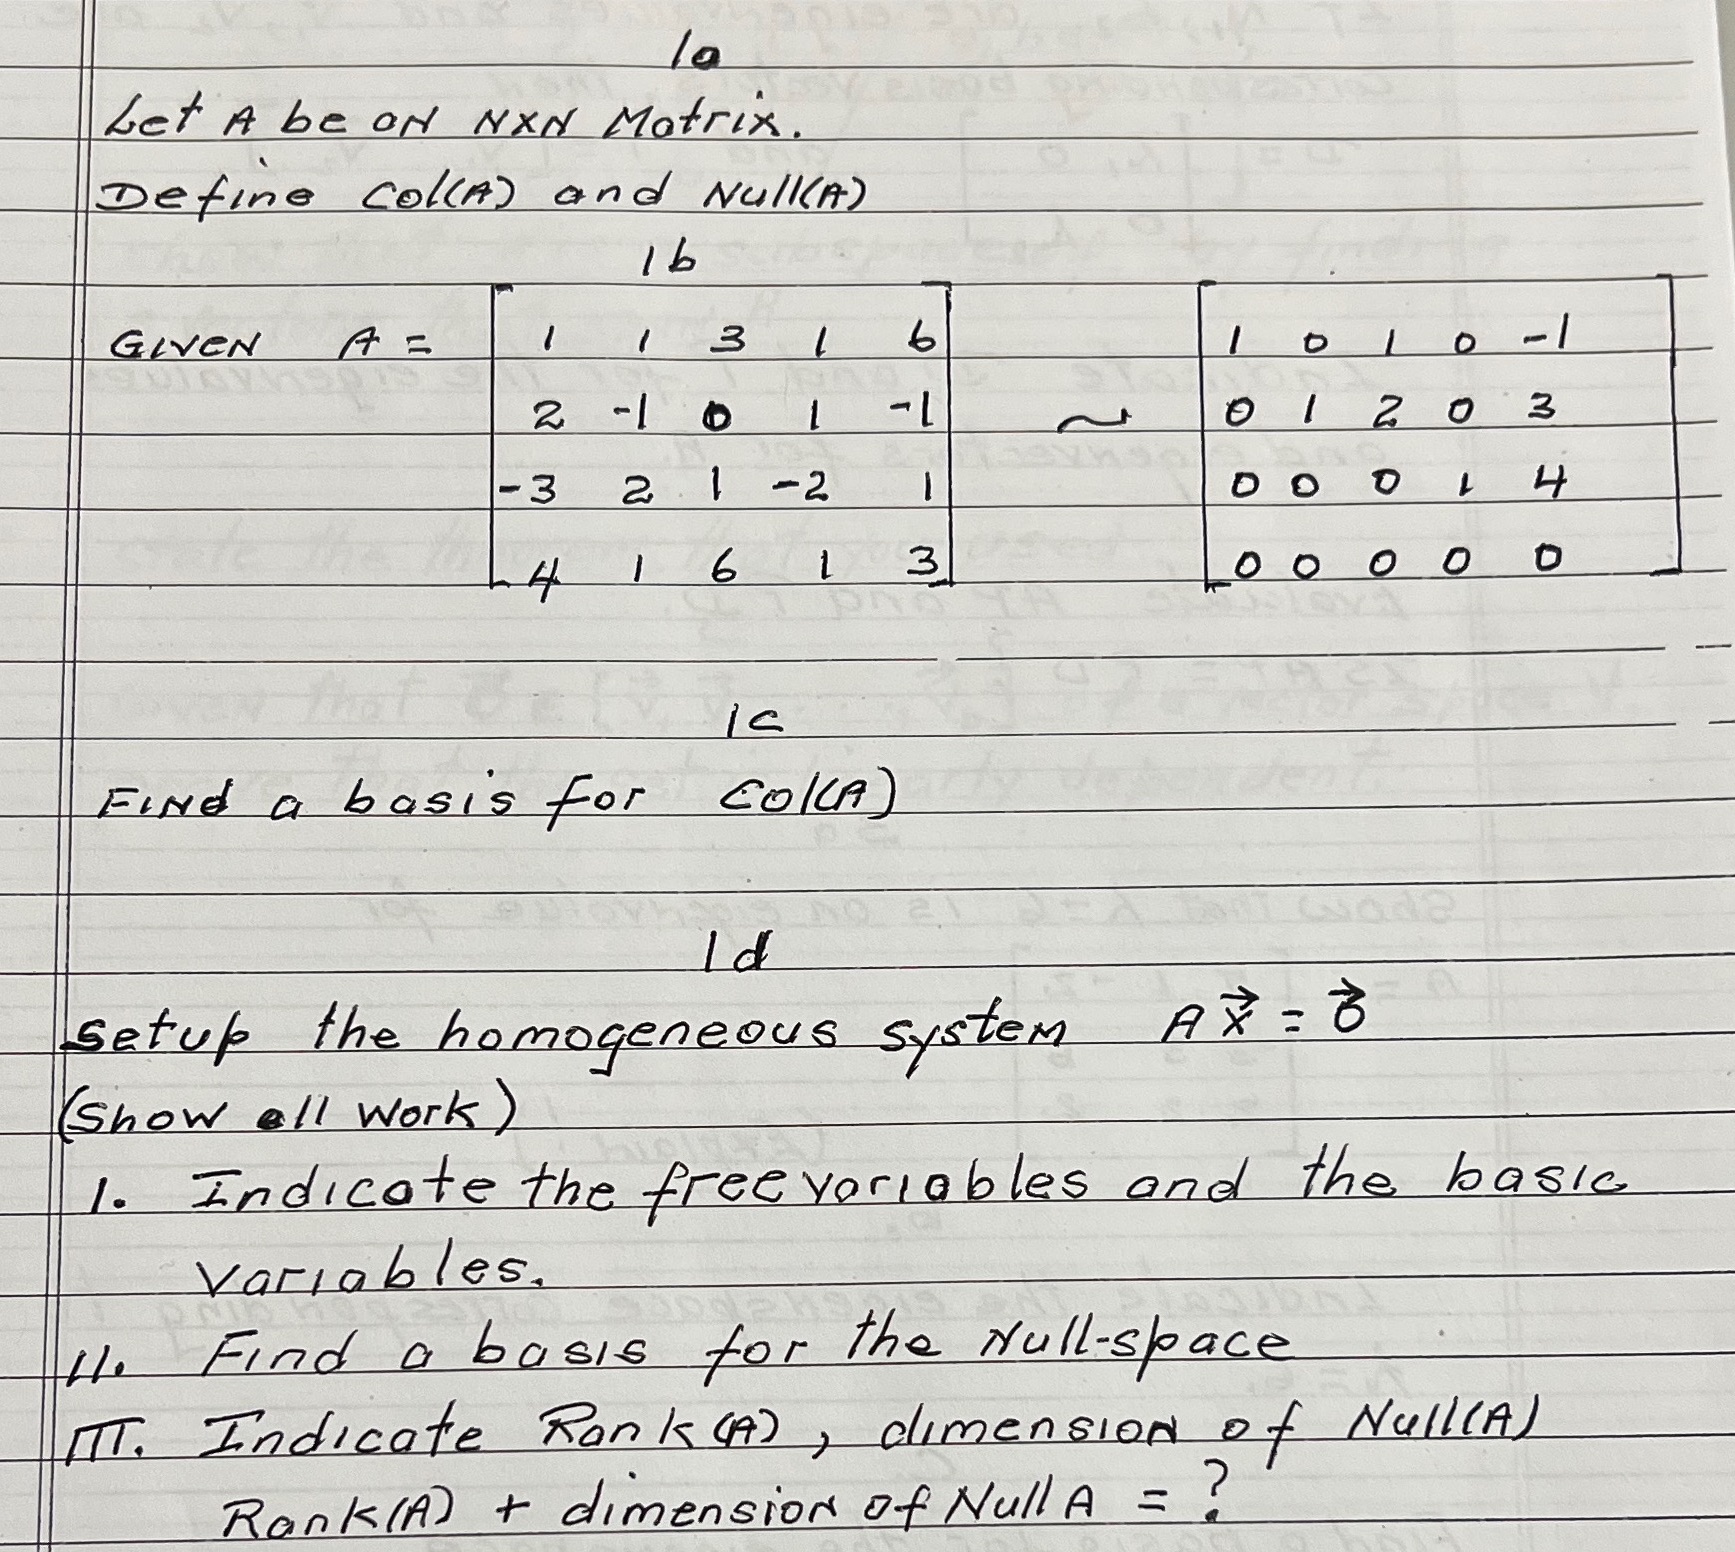 1a
Let A be an NXN Matrix.
Define Col(A) and Null(A)
1b
GIVEN A = [ 1 1 3 1 6 ~ [ 1 0 1 0 -1
2 -1 0 1 -1 0 1 2 0 3
-3 2 1 -2 1 0 0 0 1 4
4 1 6 1 3 ] 0 0 0 0 0 ]
1c
FINd a basis for Col(A)
1d
setup the homogeneous system A x⃗ = 0⃗
(Show all Work)
I. Indicate the free variables and the basic
variables.
II. Find a basis for the Null-space
III. Indicate Rank(A), dimension of Null(A)
Rank(A) + dimension of Null A = ?